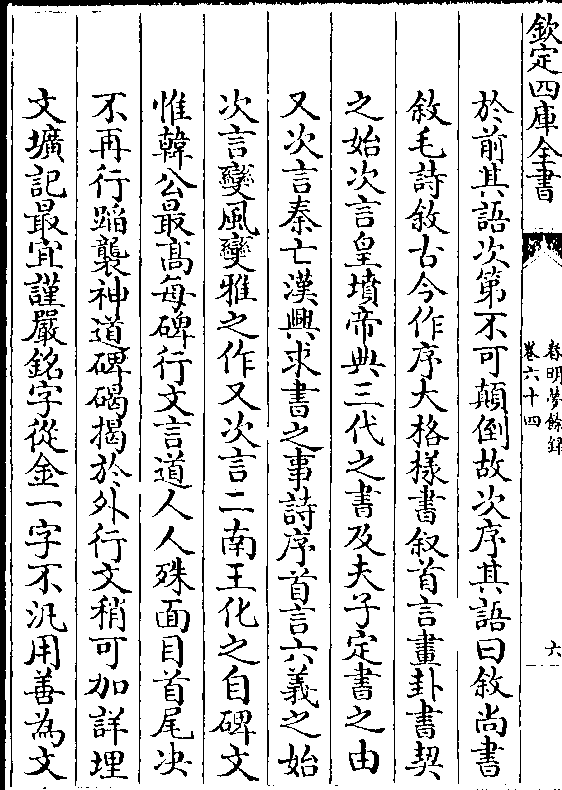 欽定四庫全書
春明夢餘録
卷六十四
六
於前其語次第不可顛倒故次序其語曰敘尚書
敘毛詩敘古今作序大格樣書叙首言畫卦書契
之始次言皇墳帝典三代之書及夫子定書之由
又次言秦亡漢興求書之事詩序首言六義之始
次言變風變雅之作又次言二南王化之自碑文
惟韓公最髙每碑行文言道人人殊面目首尾决
不再行蹈襲神道碑碣揭於外行文稍可加詳埋
文壙記最宜謹嚴銘字從金一字不汎用善為文